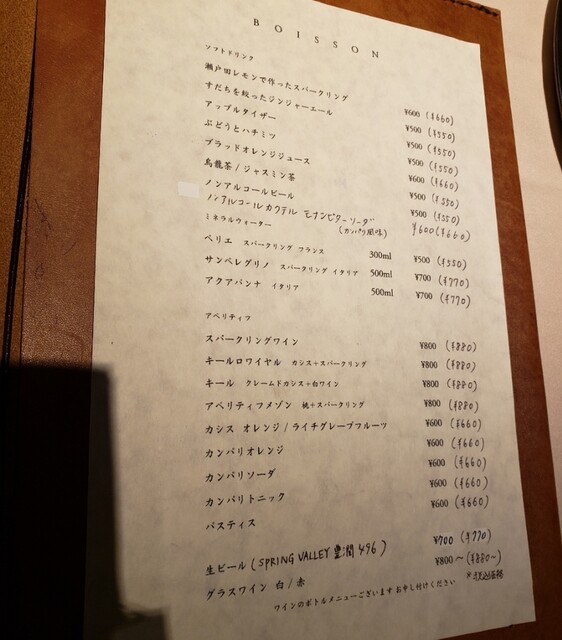 BOISSON
ソフトドリンク
瀬戸田レモンで作ったスパークリング ¥600 (¥660)
すだちを絞ったジンジャーエール ¥500 (¥550)
アップルタイザー ¥500 (¥550)
ぶどうとハチミツ ¥500 (¥550)
ブラッドオレンジジュース ¥600 (¥660)
烏龍茶 / ジャスミン茶 ¥500 (¥550)
ノンアルコールビール ¥500 (¥550)
ノンアルコールカクテル モナンビターソーダ (カンパリ風味) ¥600 (¥660)
ミネラルウォーター
ペリエ スパークリング フランス 300ml ¥500 (¥550)
サンペレグリノ スパークリング イタリア 500ml ¥700 (¥770)
アクアパンナ イタリア 500ml ¥700 (¥770)
アペリティフ
スパークリングワイン ¥800 (¥880)
キールロワイヤル カシス+スパークリング ¥800 (¥880)
キール クレームドカシス+白ワイン ¥800 (¥880)
アペリティフメゾン 桃+スパークリング ¥800 (¥880)
カシス オレンジ / ライチグレープフルーツ ¥600 (¥660)
カンパリオレンジ ¥600 (¥660)
カンパリソーダ ¥600 (¥660)
カンパリトニック ¥600 (¥660)
パスティス ¥600 (¥660)
生ビール (SPRING VALLEY 豊潤 496) ¥700 (¥770)
グラスワイン 白 / 赤 ¥800〜 (¥880〜)
ワインのボトルメニューございます お申し付けください
*税込価格